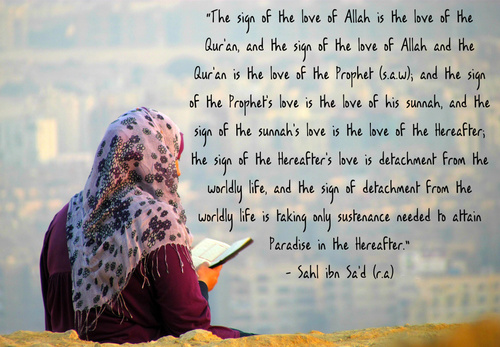 "The sign of the love of Allah is the love of the
Qur'an, and the sign of the love of Allah and the
Qur'an is the love of the Prophet (s.a.w); and the sign
of the Prophet's love is the love of his sunnah, and the
sign of the sunnah's love is the love of the Hereafter;
the sign of the Hereafter's love is detachment from the
worldly life, and the sign of detachment from the
worldly life is taking only sustenance needed to attain
Paradise in the Hereafter."
- Sahl ibn Sa'd (r.a)